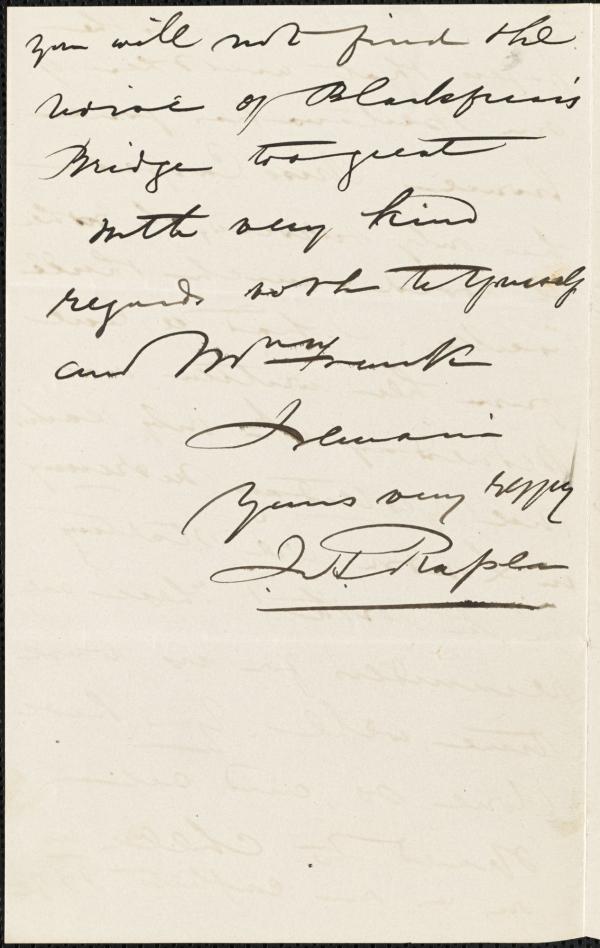 you will not find the
noise of Blackfriars
Bridge too great
With very kind
regards both to Yourself
and Frank
I remain
Yours very
J. A.